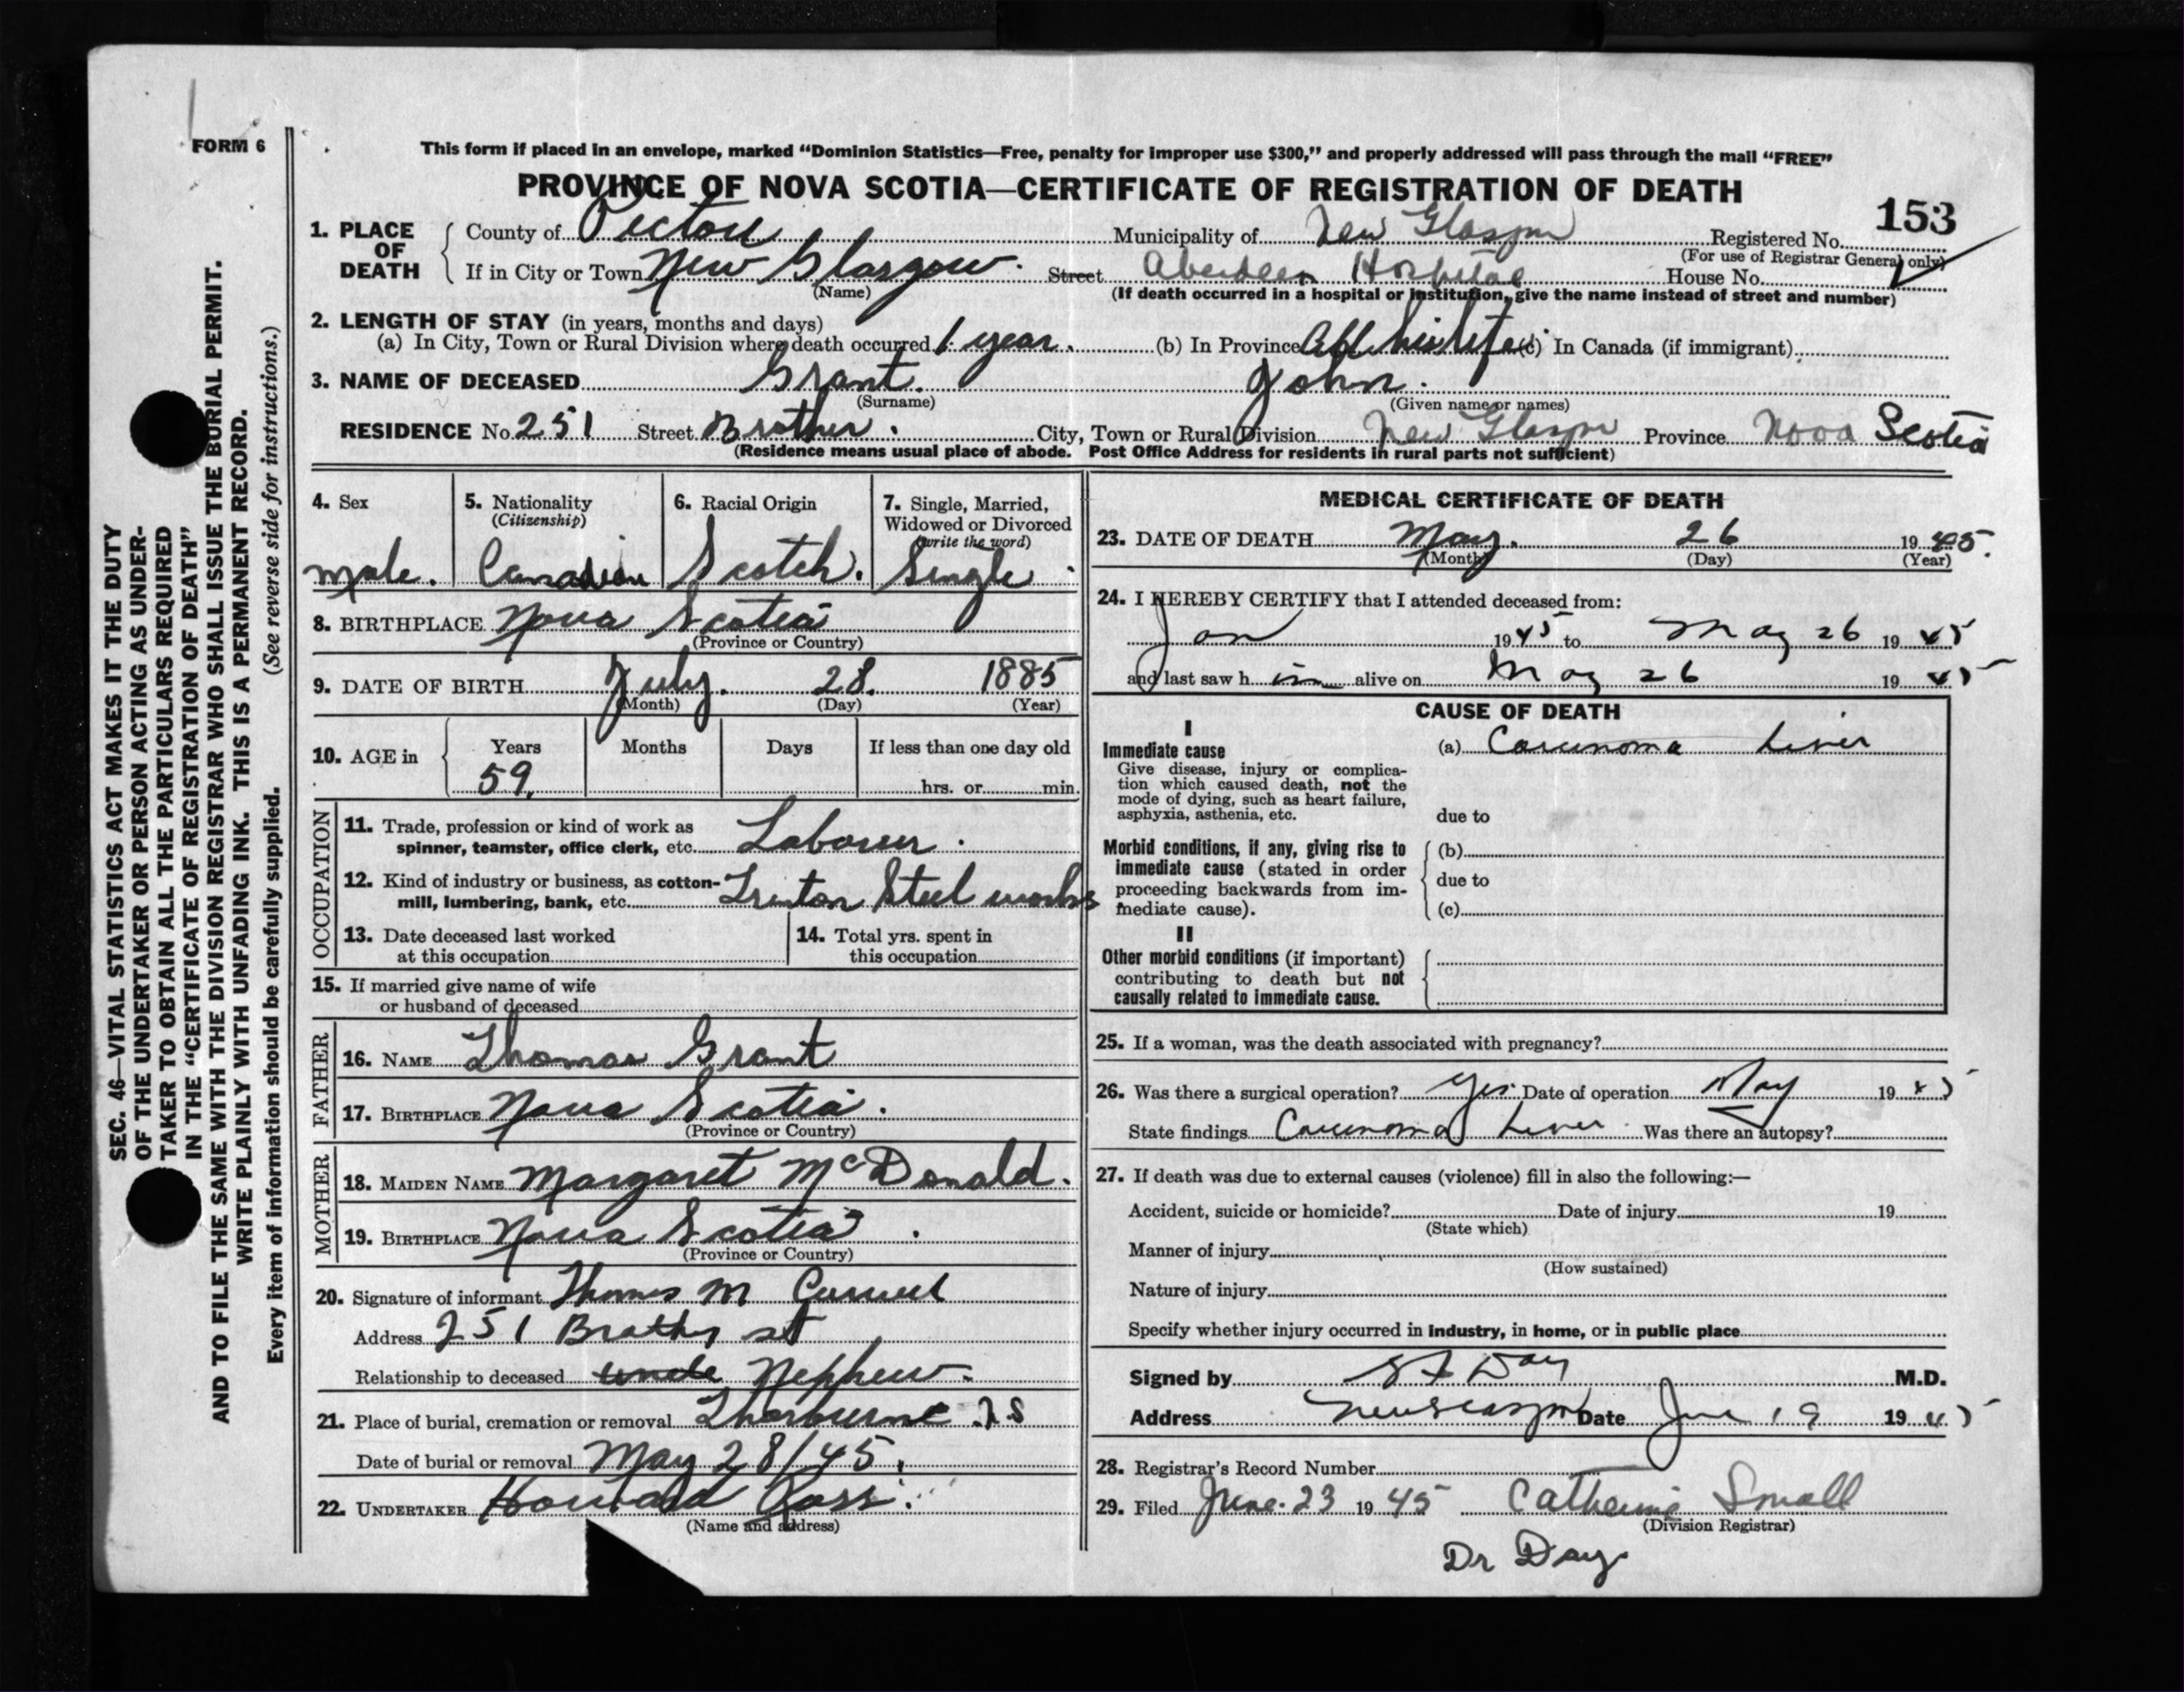 FORM 6
This form if placed in an envelope, marked "Dominion Statistics—Free, penalty for improper use $300," and properly addressed will pass through the mail "FREE"
PROVINCE OF NOVA SCOTIA—CERTIFICATE OF REGISTRATION OF DEATH
153
1. PLACE OF DEATH County of Pictou Municipality of New Glasgow Registered No.
(For use of Registrar General only)
If in City or Town New Glasgow. Street Aberdeen Hospital House No.
(Name) (If death occurred in a hospital or institution, give the name instead of street and number)
2. LENGTH OF STAY (in years, months and days)
(a) In City, Town or Rural Division where death occurred 1 year. (b) In Province All his life (c) In Canada (if immigrant)
3. NAME OF DECEASED Grant. John.
(Surname) (Given name or names)
RESIDENCE No. 251 Street City, Town or Rural Division New Glasgow Province Nova Scotia
(Residence means usual place of abode. Post Office Address for residents in rural parts not sufficient)
4. Sex male.
5. Nationality (Citizenship) Canadian
6. Racial Origin Scotch.
7. Single, Married, Widowed or Divorced (write the word) Single
8. BIRTHPLACE Nova Scotia
(Province or Country)
9. DATE OF BIRTH July. 28. 1885
(Month) (Day) (Year)
10. AGE in Years Months Days If less than one day old
59. hrs. or min.
OCCUPATION
11. Trade, profession or kind of work as
spinner, teamster, office clerk, etc. Labourer.
12. Kind of industry or business, as cotton-
mill, lumbering, bank, etc. Trenton Steel works
13. Date deceased last worked
at this occupation
14. Total yrs. spent in
this occupation
15. If married give name of wife
or husband of deceased
FATHER
16. NAME Thomas Grant
17. BIRTHPLACE Nova Scotia.
(Province or Country)
MOTHER
18. MAIDEN NAME Margaret McDonald.
19. BIRTHPLACE Nova Scotia.
(Province or Country)
20. Signature of informant Thomas M
Address 251 st
Relationship to deceased uncle Nephew.
21. Place of burial, cremation or removal Thorburne N S
Date of burial or removal May 28/45.
22. UNDERTAKER Howard Ross.
(Name and address)
MEDICAL CERTIFICATE OF DEATH
23. DATE OF DEATH May. 26 1945.
(Month) (Day) (Year)
24. I HEREBY CERTIFY that I attended deceased from:
Jan 1945 to May 26 1945
and last saw him alive on May 26 1945
CAUSE OF DEATH
I
Immediate cause (a) Carcinoma Liver
Give disease, injury or complica-
tion which caused death, not the
mode of dying, such as heart failure,
asphyxia, asthenia, etc. due to
Morbid conditions, if any, giving rise to (b)
immediate cause (stated in order
proceeding backwards from im- due to
mediate cause). (c)
II
Other morbid conditions (if important)
contributing to death but not
causally related to immediate cause.
25. If a woman, was the death associated with pregnancy?
26. Was there a surgical operation? Yes Date of operation May 1945
State findings Carcinoma Liver Was there an autopsy?
27. If death was due to external causes (violence) fill in also the following:—
Accident, suicide or homicide? Date of injury 19
(State which)
Manner of injury
(How sustained)
Nature of injury
Specify whether injury occurred in industry, in home, or in public place
Signed by Day M.D.
Address New Glasgow Date June 19 1945
28. Registrar's Record Number
29. Filed June. 23 1945 Catherine Small
(Division Registrar)
Dr Day
SEC. 46—VITAL STATISTICS ACT MAKES IT THE DUTY
OF THE UNDERTAKER OR PERSON ACTING AS UNDER-
TAKER TO OBTAIN ALL THE PARTICULARS REQUIRED
IN THE "CERTIFICATE OF REGISTRATION OF DEATH"
AND TO FILE THE SAME WITH THE DIVISION REGISTRAR WHO SHALL ISSUE THE BURIAL PERMIT.
WRITE PLAINLY WITH UNFADING INK. THIS IS A PERMANENT RECORD.
Every item of information should be carefully supplied. (See reverse side for instructions.)